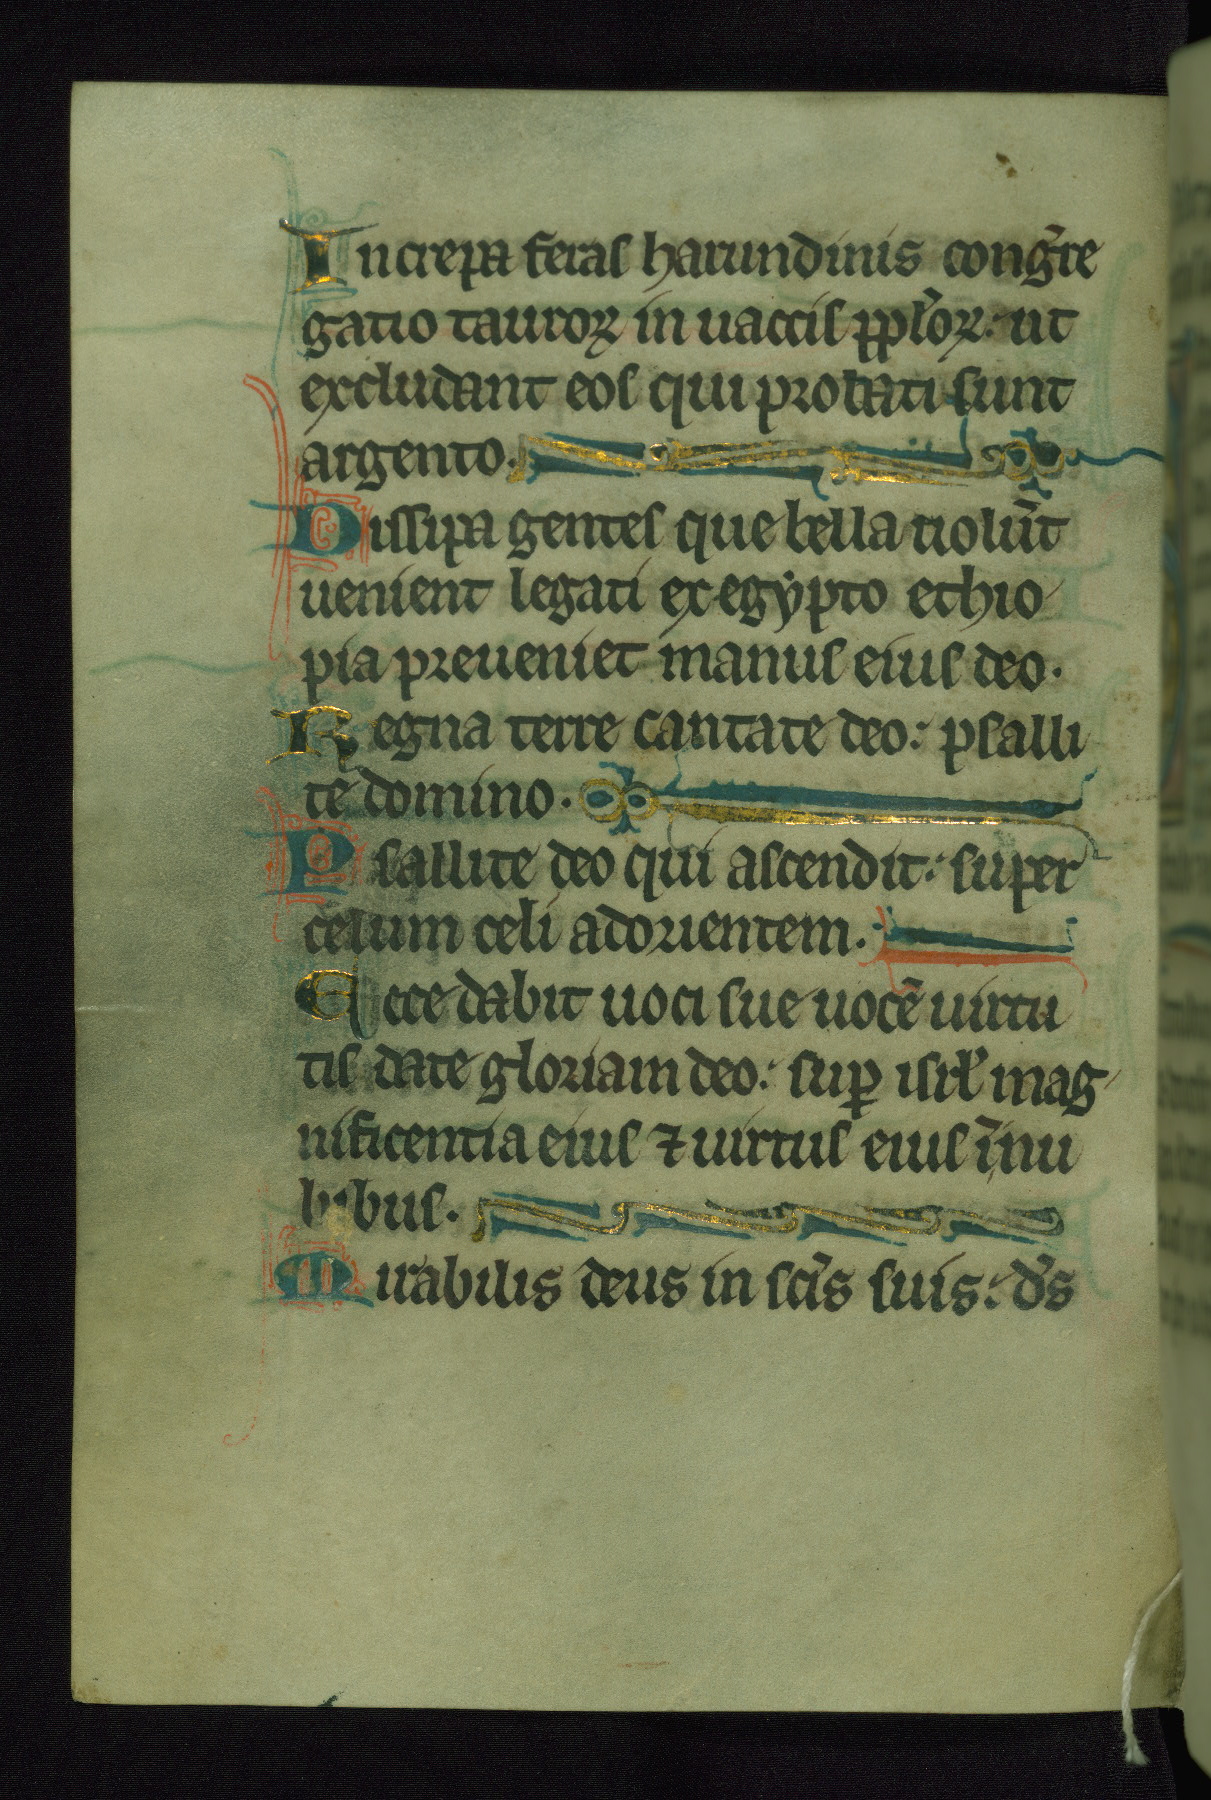 Increpa feras harundinis cong̃re
gatio tauroꝝ in uaccis pplo̾ꝝ: ut
excludant eos qui probati sunt
argento.
Dissipa gentes que bella uolũt
uenient legati ex egẏpto ethio
pia preueniet manus eius deo.
Regna terre cantate deo: psalli
te domino.
Psallite deo qui ascendit: super
celum celi ad orientem.
Ecce dabit uoci sue uocẽ uirtu
tis date gloriam deo: suꝑ isrl̾ mag
nificentia eius ⁊ uirtus eius ĩ nu
bibus.
Mirabilis deus in sc̃is suis: d̾s